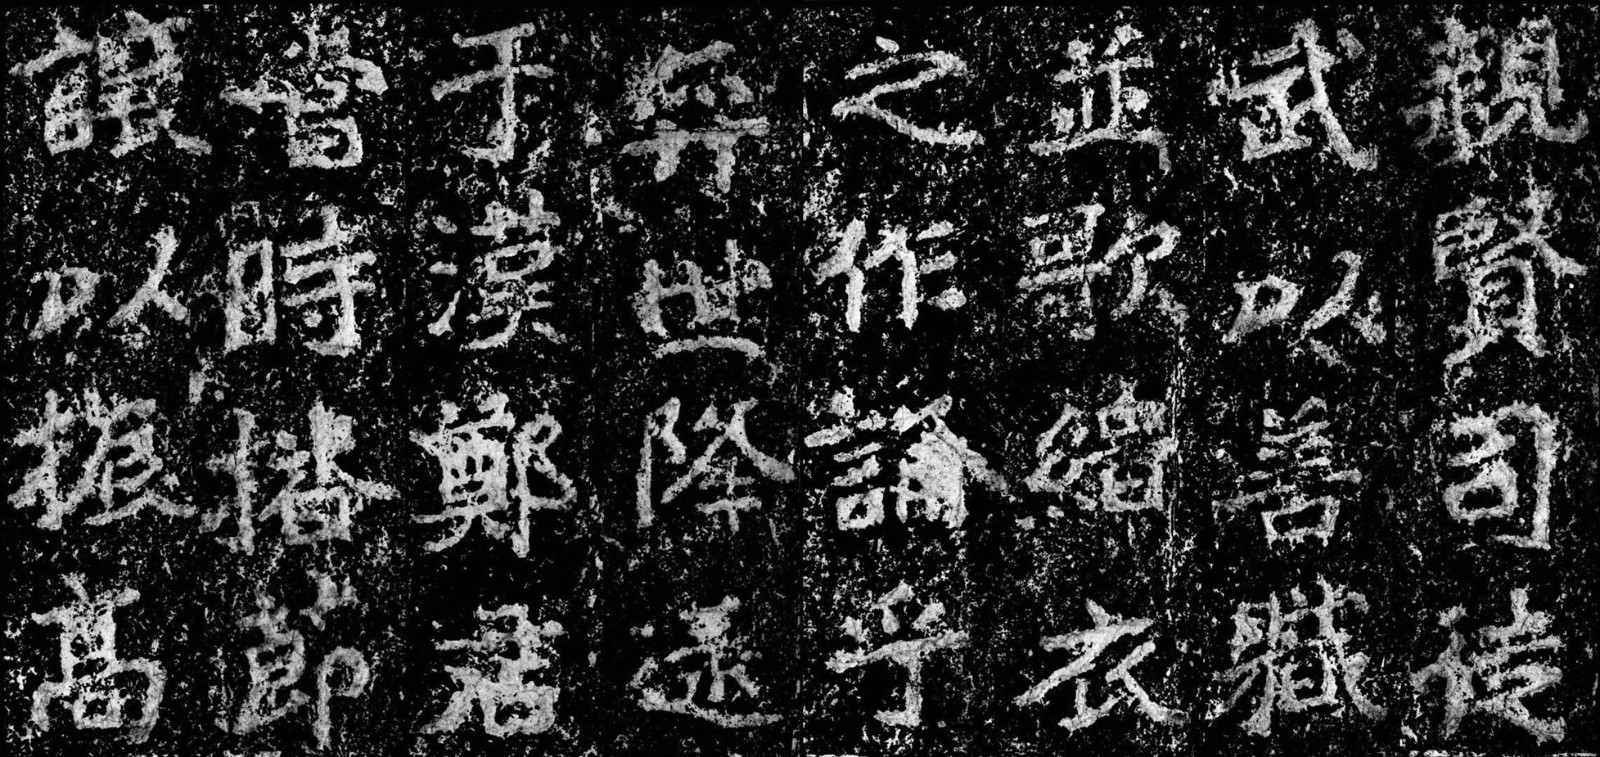 親賢司徒
武以善職
並歌緇衣
之作論乎
弈世降逮
于漢鄭君
當時播節
讓以振高